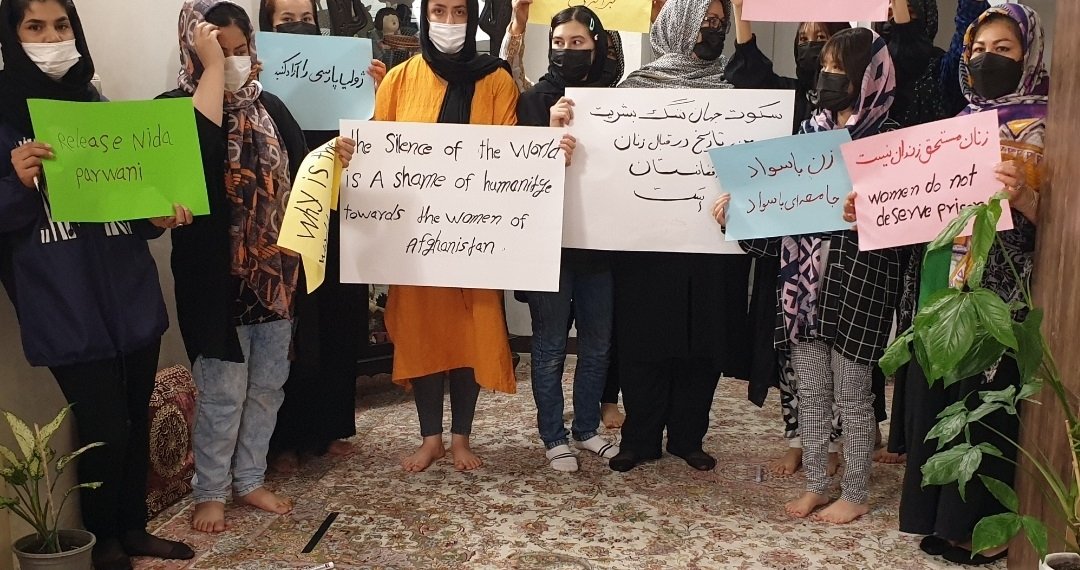 Release Nida
parwani
ژولیا پارسی را آزاد کنید
Why is the
the silence of the World
is A shame of humanity
towards the women of
Afghanistan.
سکوت جهان ننگ بشریت
تاریخ در قبال زنان
افغانستان
است
زن باسواد
جامعه‌ای باسواد
زنان مستحق زندان نیست
women do not
deserve prison